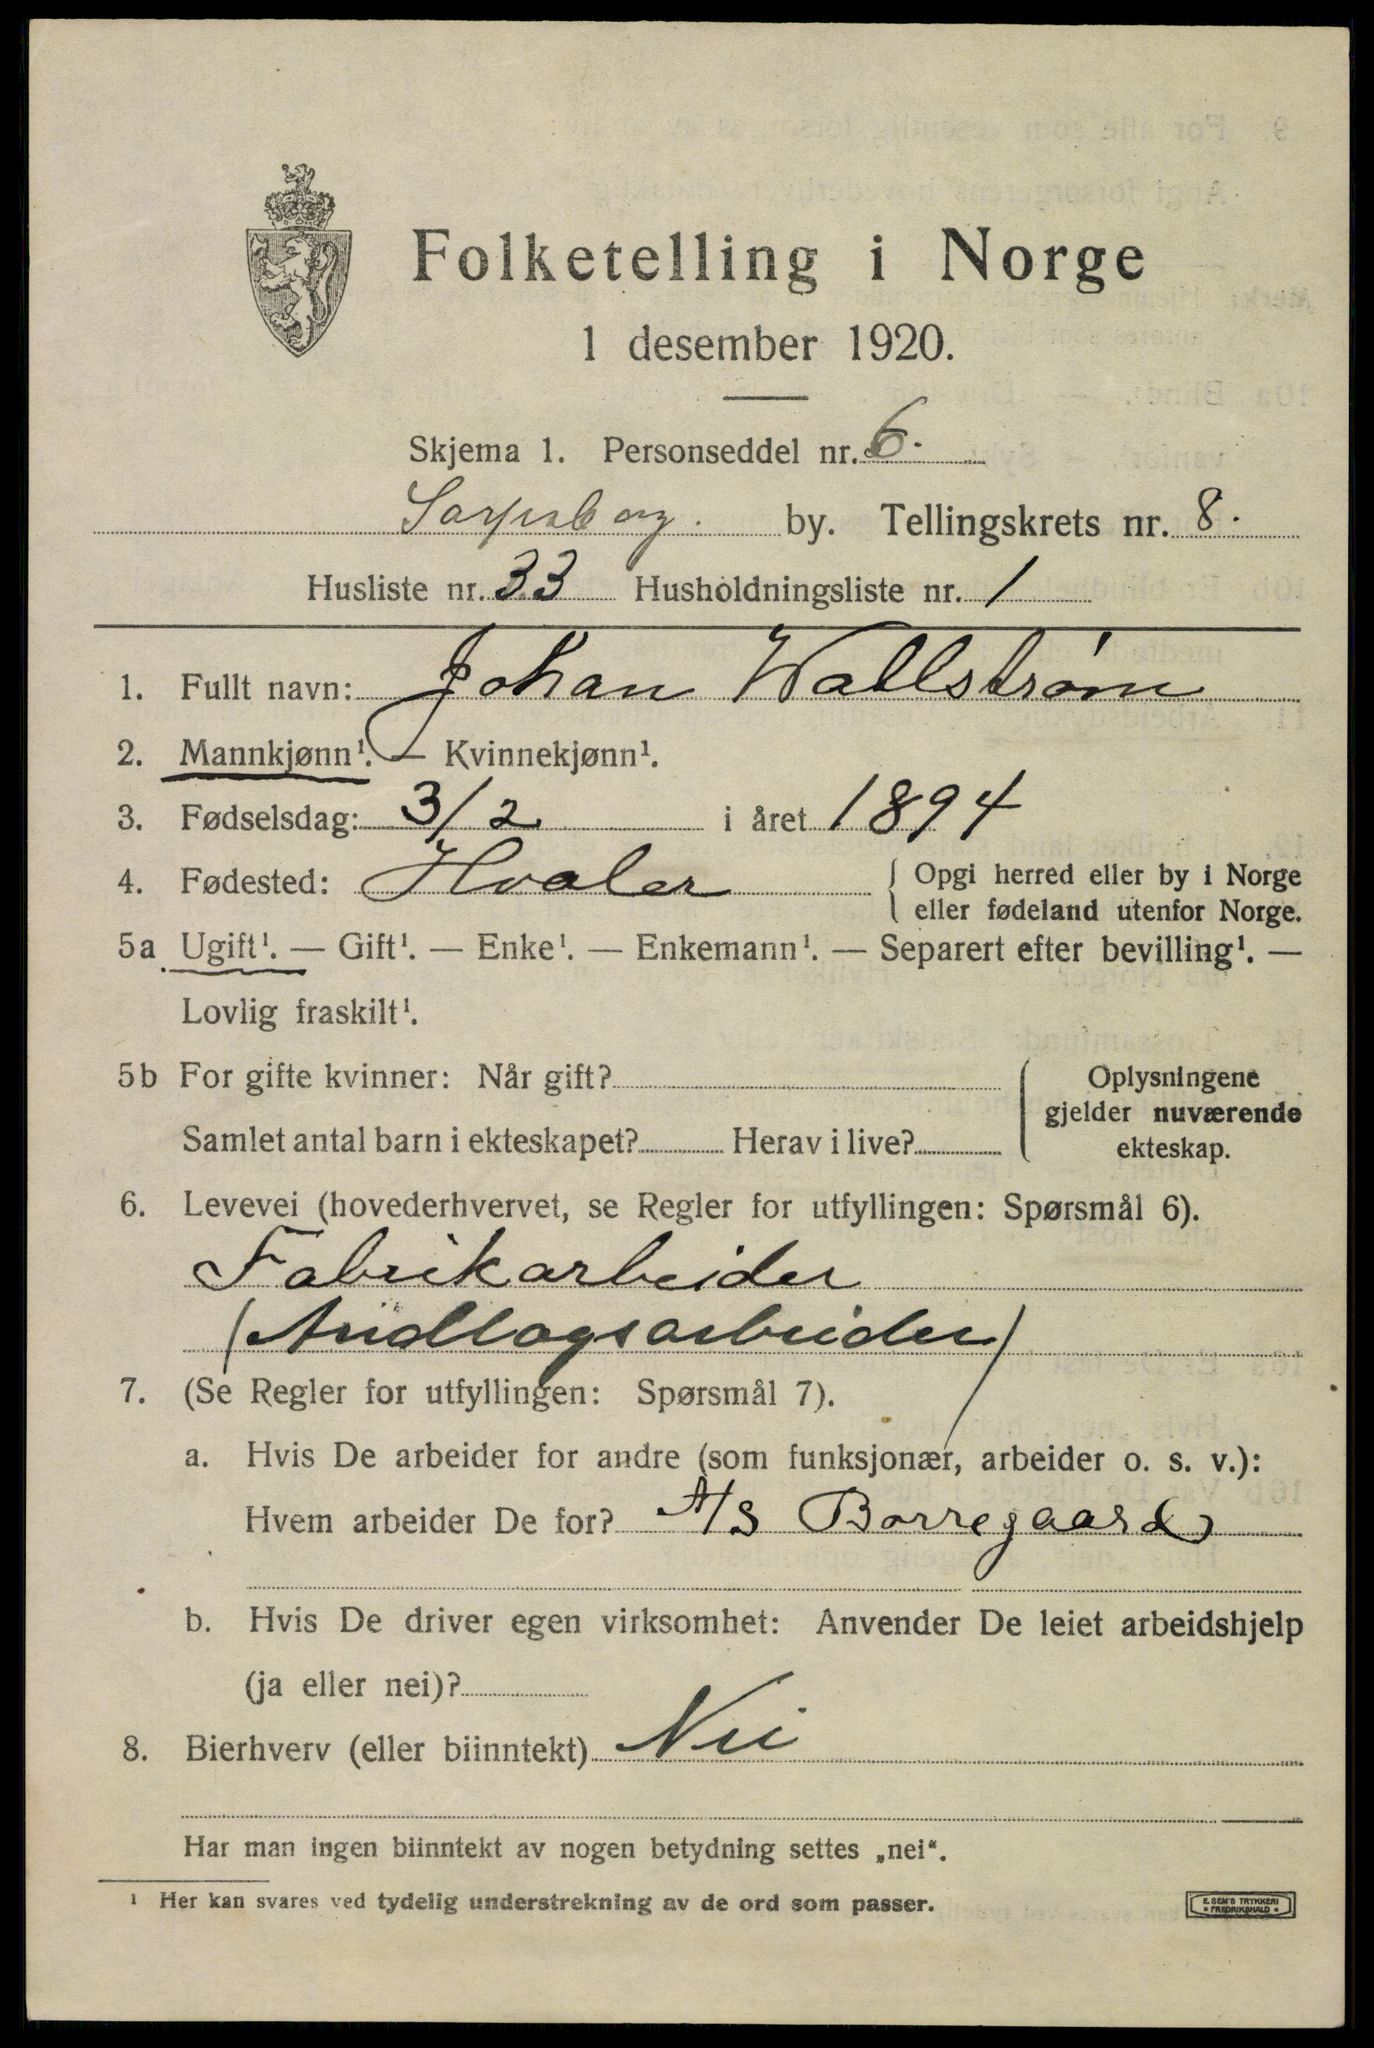 Folketelling i Norge
1 desember 1920.
Skjema 1. Personseddel nr. 6.
Sarpsborg. by. Tellingskrets nr. 8.
Husliste nr. 33 Husholdningsliste nr. 1
1. Fullt navn: Johan Wallstrøm
2. Mannkjønn¹. — Kvinnekjønn¹.
3. Fødselsdag: 3/2 i året 1894
4. Fødested: Hvaler { Opgi herred eller by i Norge
eller fødeland utenfor Norge.
5a Ugift¹. — Gift¹. — Enke¹. — Enkemann¹. — Separert efter bevilling¹. —
Lovlig fraskilt¹.
5b For gifte kvinner: Når gift?
Samlet antal barn i ekteskapet? Herav i live?
{ Oplysningene
gjelder nuværende
ekteskap.
6. Levevei (hovederhvervet, se Regler for utfyllingen: Spørsmål 6).
Fabrikarbeider
(Andlagsarbeider)
7. (Se Regler for utfyllingen: Spørsmål 7).
a. Hvis De arbeider for andre (som funksjonær, arbeider o. s. v.):
Hvem arbeider De for? A/S Borregaard
b. Hvis De driver egen virksomhet: Anvender De leiet arbeidshjelp
(ja eller nei)?
8. Bierhverv (eller biinntekt) Nei
Har man ingen biinntekt av nogen betydning settes „nei“.
¹ Her kan svares ved tydelig understrekning av de ord som passer.
E. SEM'S TRYKKERI
FREDRIKSHALD